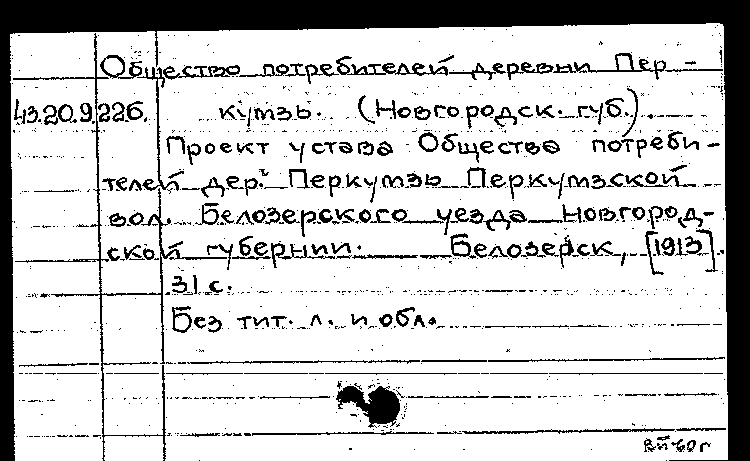 Общество потребителей деревни Пер-
43.20.9.226. кутзь. (Новгородск. губ.).
Проект устава Общества потреби-
телей дер. Перкутзь Перкутзской
вол. Белозерского уезда Новгород-
ской губернии. Белозерск, [1913].
31 с.
Без тит. л. и обл.